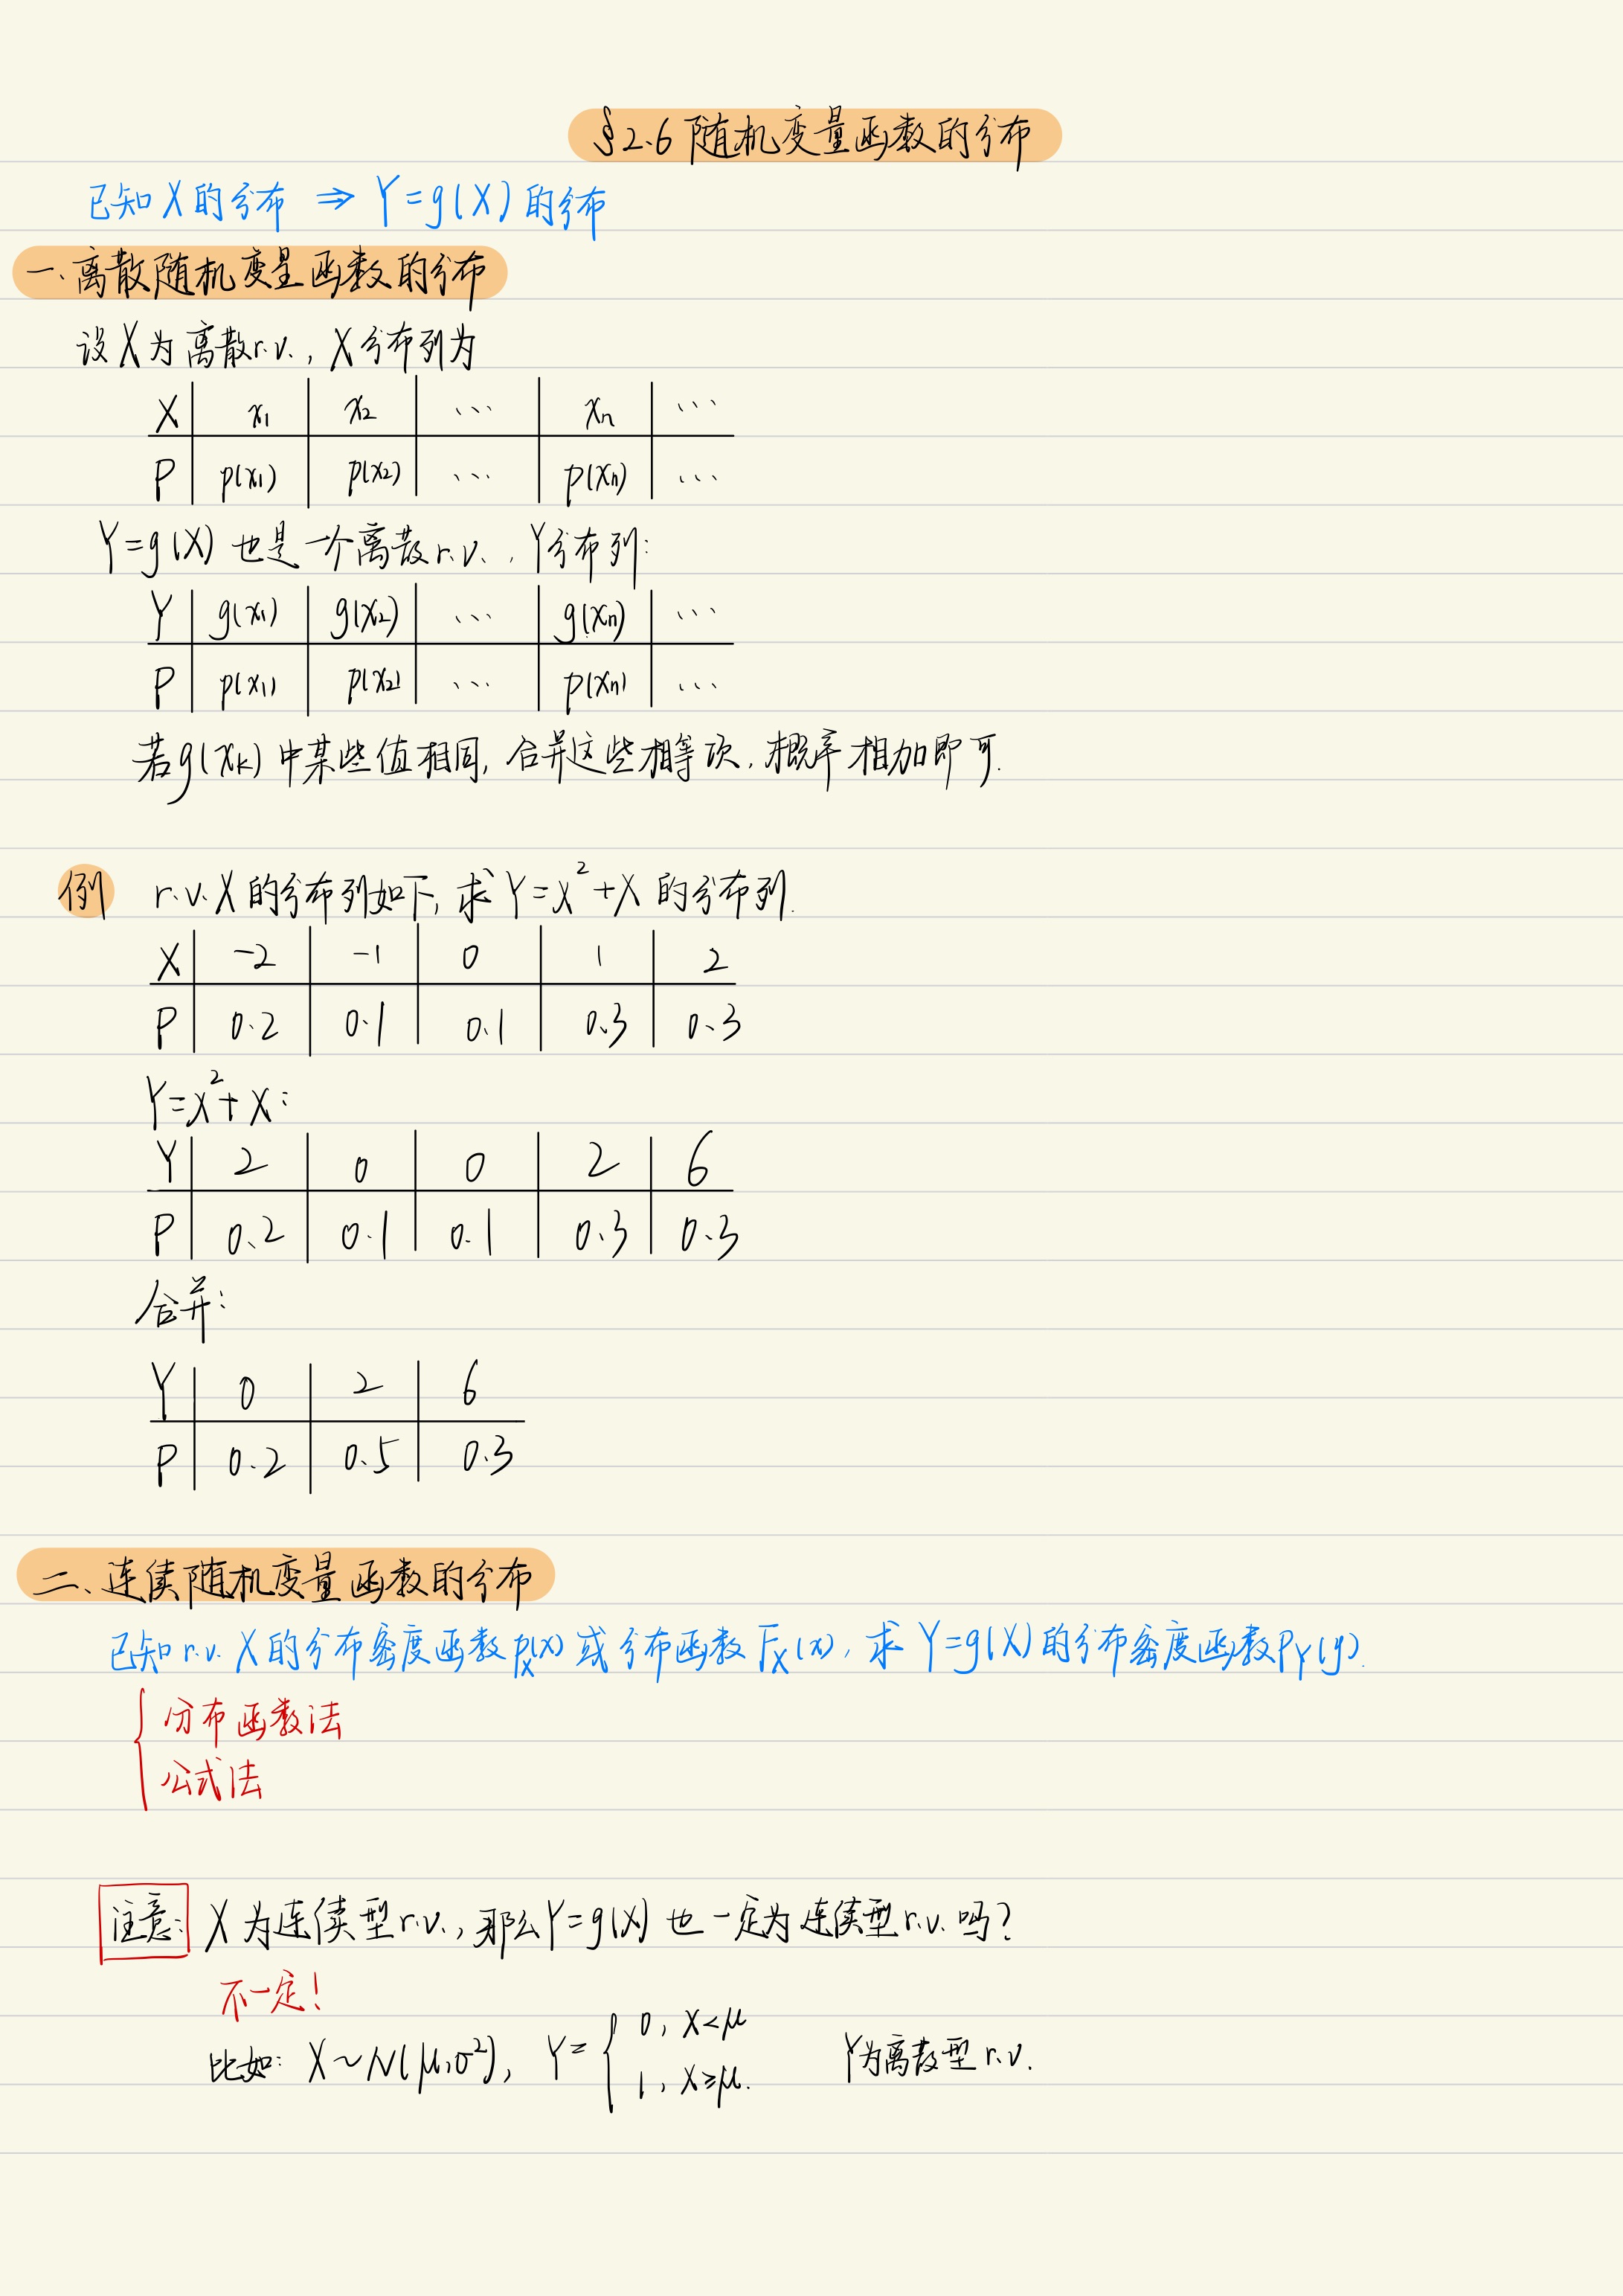 §2.6 随机变量函数的分布
已知X的分布 ⇒ Y=g(X)的分布
一、离散随机变量函数的分布
设X为离散r.v., X分布列为
X | x₁ | x₂ | … | xₙ | …
P | p(x₁) | p(x₂) | … | p(xₙ) | …
Y=g(X) 也是一个离散r.v., Y分布列:
Y | g(x₁) | g(x₂) | … | g(xₙ) | …
P | p(x₁) | p(x₂) | … | p(xₙ) | …
若g(xₖ)中某些值相同, 合并这些相等项, 概率相加即可.
例 r.v.X的分布列如下, 求Y=X²+X的分布列.
X | -2 | -1 | 0 | 1 | 2
P | 0.2 | 0.1 | 0.1 | 0.3 | 0.3
Y=X²+X:
Y | 2 | 0 | 0 | 2 | 6
P | 0.2 | 0.1 | 0.1 | 0.3 | 0.3
合并:
Y | 0 | 2 | 6
P | 0.2 | 0.5 | 0.3
二、连续随机变量函数的分布
已知r.v. X的分布密度函数p_X(x)或分布函数F_X(x), 求Y=g(X)的分布密度函数p_Y(y).
{ 分布函数法
公式法
注意: X为连续型r.v., 那么Y=g(X)也一定为连续型r.v.吗?
不一定!
比如: X~N(μ,σ²), Y={ 0, X<μ
1, X≥μ. Y为离散型r.v.